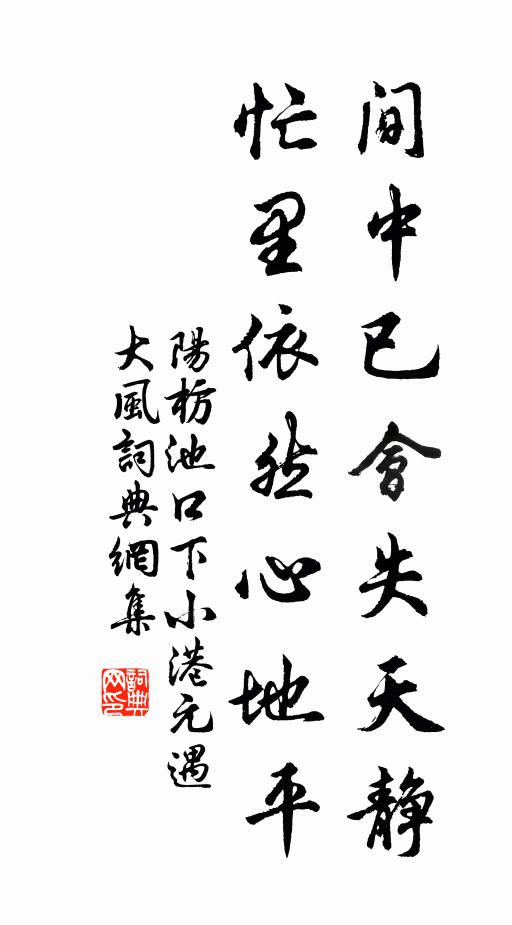 閒中已會失天靜
忙里依然心地平
陽枋池口下小港元遇
大風詞典網集
詞典
网印